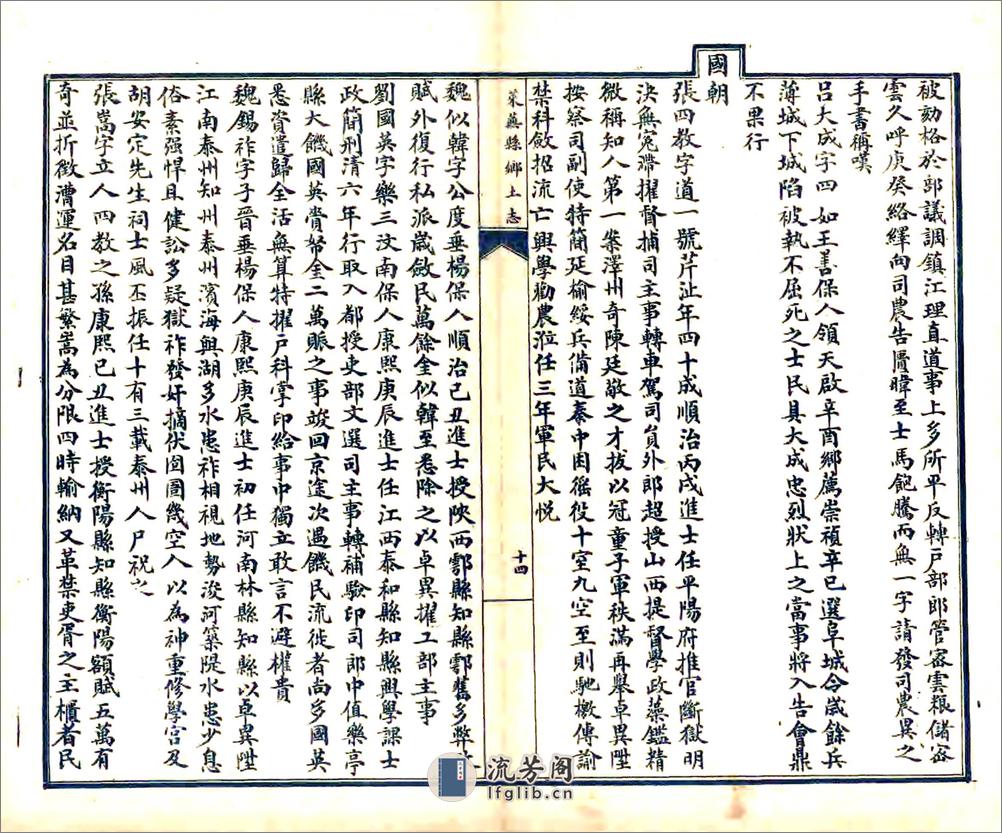 被劾格於部議調鎮江理直道事上多所平反轉戶部郎管密雲粮儲密
雲久呼庚癸絡繹向司農告匱暐至士馬飽騰而無一字請發司農異之
手書稱嘆
呂大成字四如王善保人領天啟辛酉鄉薦崇禎辛巳選阜城令歲餘兵
薄城下城陷被執不屈死之士民具大成忠烈狀上之當事將入告會鼎
不果行
國朝
張四教字道一號芹沚年四十成順治丙戌進士任平陽府推官斷獄明
決無寃滯擢督捕司主事轉車駕司員外郎超授山西提督學政藻鑑精
微稱知人第一案澤州奇陳廷敬之才拔以冠童子軍秩滿再舉卓異陞
按察司副使特簡延榆綏兵備道秦中困徭役十室九空至則馳檄傳諭
禁科斂招流亡興學勸農涖任三年軍民大悅
萊蕪縣鄉土志
十四
魏似韓字公度垂楊保人順治己丑進士授陝西鄠縣知縣鄠舊多弊
賦外復行私派歲斂民萬餘金似韓至悉除之以卓異擢工部主事
劉國英字樂三汶南保人康熙庚辰進士任江西泰和縣知縣興學課士
政簡刑清六年行取入都授吏部文選司主事轉補驗印司郎中值樂亭
縣大饑國英賫帑金二萬賑之事竣回京途次遇饑民流徙者尚多國英
悉資遣歸全活無算特擢戶科掌印給事中獨立敢言不避權貴
魏錫祚字子晉垂楊保人康熙庚辰進士初任河南林縣知縣以卓異陞
江南泰州知州泰州濱海興湖多水患祚相視地勢浚河築隄水患少息
俗素强悍且健訟多疑獄祚發奸摘伏囹圄幾空人以為神重修學宮及
胡安定先生祠士風丕振任十有三載泰州人尸祝之
張嵩字立人四教之孫康熙己丑進士授衡陽縣知縣衡陽額賦五萬有
奇並折徵漕運名目甚繁嵩為分限四時輸納又革禁吏胥之主櫃者民
流芳阁
lfglib.cn